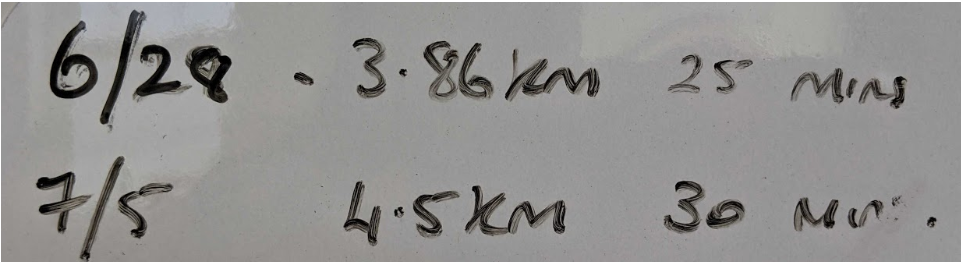 6/28 - 3.86 KM 25 MINS
7/5 4.5 KM 30 MIN.